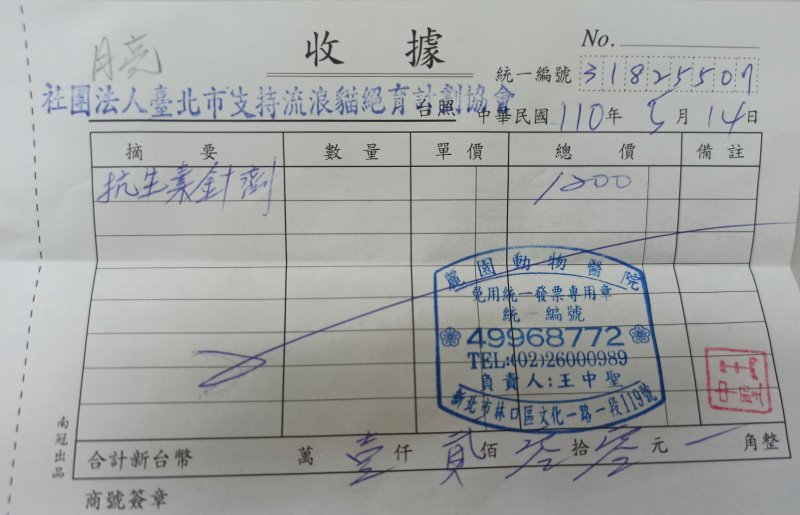 收據
No.
月亮
統一編號 31825507
社團法人臺北市支持流浪貓絕育計劃協會
台照
中華民國 110年 5月 14日
摘要 數量 單價 總價 備註
抗生素針劑 1200
麗園動物醫院
免用統一發票專用章
統一編號
49968772
TEL:(02)26000989
負責人:王中聖
新北市林口區文化一路一段119號
王中聖
合計新台幣 萬 壹仟 貳佰 零拾 零元 角整
商號簽章
南冠出品